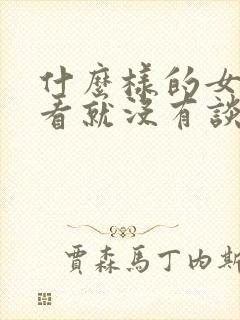 什麼樣的女
看就沒有談
賈森馬丁內斯